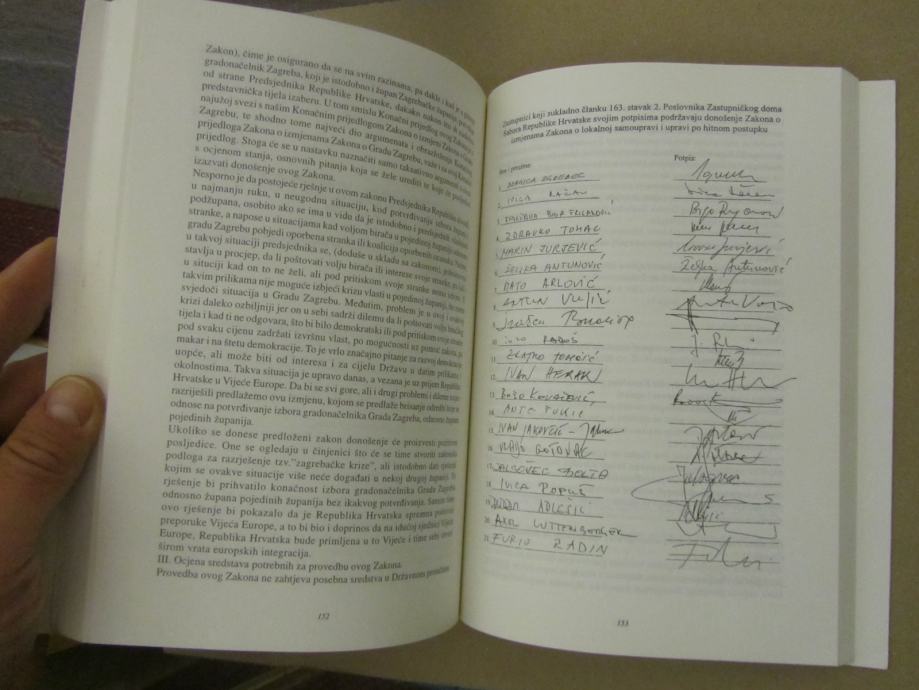 Zakon), čime je osigurano da se na svim razinama, pa dakle i kad je u pitanju
gradonačelnik Zagreba, koji je istodobno i župan Zagrebačke županije, potvrđuje
od strane Predsjednika Republike Hrvatske, dakako nakon što ih
predstavnička tijela izaberu. U tom smislu Konačni prijedlog ovog Zakona je u
najužoj svezi s našim Konačnim prijedlogom Zakona o izmjeni Zakona o
Gradu Zagrebu, te shodno tome najveći dio argumenata i obrazloženja
prijedloga Zakona o izmjenama Zakona o Gradu Zagrebu, vaše i na ovaj
prijedlog. Stoga će se u nastavku naznačiti samo taksativno argumenti
s ocjenom stanja, osnovnih pitanja koja se žele urediti te koje će posljedice
izazvati donošenje ovog Zakona.
Nesporno je da postojeće rješnje u ovom zakonu Predsjednika Republike dovodi,
u najmanju ruku, u neugodnu situaciju, kod potvrđivanja izbora župana,
podžupana, osobito ako se ima u vidu da je istodobno i predsjednik vladajuće
stranke, a napose u situacijama kad voljom birača u pojedinoj županiji odnosno
gradu Zagrebu pobjedi oporbena stranka ili koalicija oporbenih stranaka.
u takvoj situaciji predsjednika se, (doduše u skladu sa zakonom),
stavlja u procjep, da li poštovati volju birača ili interese svoje stranke,
u situciji kad on to ne želi, ali pod pritiskom svoje stranke mora
takvim prilikama nije moguće izbjeći krizu vlasti u pojedinoj županiji,
svjedoči situacija u Gradu Zagrebu. Međutim, problem je u ovoj i ovakvoj
krizi daleko ozbiljniji jer on u sebi sadrži dilemu da li poštovati volju biračkog
tijela i kad ti ne odgovara, što bi bilo demokratski ili pod pritiskom svoje stranke
pod svaku cijenu zadržati izvršnu vlast, po mogućnosti uz pomoć zakona, pa
makar i na štetu demokracije. To je vrlo značajno pitanje za razvoj demokracije
uopće, ali može biti od interesa i za cijelu Državu u datim prilikama i
okolnostima. Takva situacija je upravo danas, a vezana je uz prijem Republike
Hrvatske u Vijeće Europe. Da bi se svi gore, ali i drugi problemi i dileme
razriješili predlažemo ovu izmjenu, kojom se predlaže brisanje odredbi koje se
odnose na potvrđivanje izbora gradonačelnika Grada Zagreba, odnosno župana
pojedinih županija.
Ukoliko se donese predloženi zakon donošenje će proizvesti pozitivne
posljedice. One se ogledaju u činjenici što će se time stvoriti zakonska
podloga za razrješenje tzv."zagrebačke krize", ali istodobno dati
kojim se ovakve situacije više neće događati u nekoj drugoj županiji. To
rješenje bi prihvatilo konačnost izbora gradonačelnika Grada Zagreba
odnosno župana pojedinih županija bez ikakvog potvrđivanja. Samim time
ovo rješenje bi pokazalo da je Republika Hrvatska spremna poštivati
preporuke Vijeća Europe, a to bi bio i doprinos da na idućoj sjednici Vijeća
Europe, Republika Hrvatska bude primljena u to Vijeće i time sebi otvori
širom vrata europskih integracija.
III. Ocjena sredstava potrebnih za provedbu ovog Zakona.
Provedba ovog Zakona ne zahtjeva posebna sredstva u Državnom proračunu
152
Zastupnici koji sukladno članku 163. stavak 2. Poslovnika Zastupničkog doma
Sabora Republike Hrvatske svojim potpisima podržavaju donošenje Zakona o
izmjenama Zakona o lokalnoj samoupravi i upravi po hitnom postupku
Ime i prezime: Potpis:
1.
2. IVICA RAČAN
3.
4. ZDRAVKO TOMAC
5. MARIN JURJEVIĆ
6. ŽELJKA ANTUNOVIĆ Željka Antunović
7. MATO ARLOVIĆ
8. ANTUN VUJIĆ
9. Snježana
10. IVO RADOŠ
11. ZLATKO TOMČIĆ
12. IVAN HERAK
13. BOŽO KOVAČEVIĆ
14. ANTE
15. IVAN JAKOVČIĆ
16. VLADO GOTOVAC
17.
18. IVICA
19. ADLEŠIĆ
20. AXEL LUTTENBERGER
21. FURIO RADIN
153